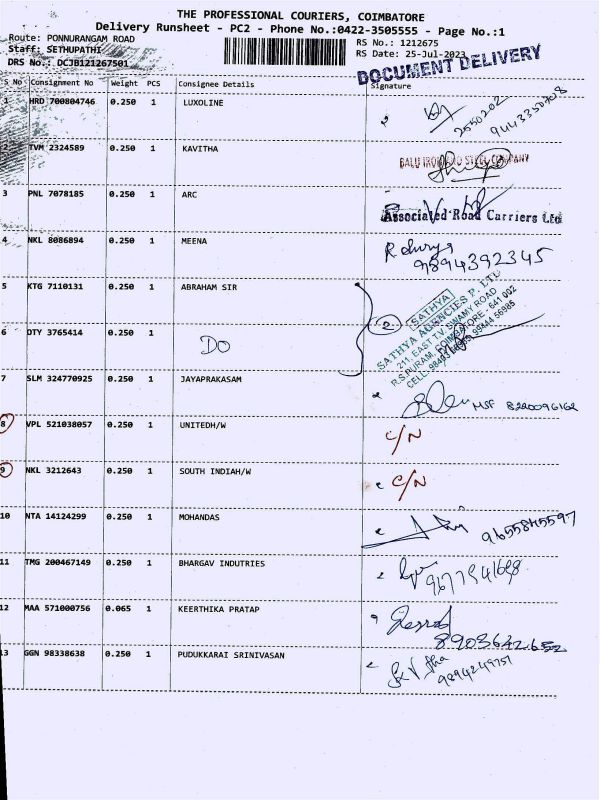 THE PROFESSIONAL COURIERS, COIMBATORE
Delivery Runsheet - PC2 - Phone No.:0422-3505555 - Page No.:1
Route: PONNURANGAM ROAD
RS No.: 1212675
Staff: SETHUPATHI
RS Date: 25-Jul-2023
DRS No.: DCJB121267501
DOCUMENT DELIVERY
S No Consignment No Weight PCS Consignee Details Signature
1 HRD 700804746 0.250 1 LUXOLINE 2550202 9443350708
2 TVM 2324589 0.250 1 KAVITHA BALU IRON AND STEEL COMPANY
3 PNL 7078185 0.250 1 ARC Associated Road Carriers Ltd
4 NKL 8086894 0.250 1 MEENA 9894392345
5 KTG 7110131 0.250 1 ABRAHAM SIR
6 DTY 3765414 0.250 1 DO
2
SATHYA
SATHYA AGENCIES P. LTD
211, EAST T.V. SWAMY ROAD
R.S.PURAM, COIMBATORE - 641 002
CELL: 99444 56985
7 SLM 324770925 0.250 1 JAYAPRAKASAM MSF 8220096162
8 VPL 521038057 0.250 1 UNITEDH/W C/N
9 NKL 3212643 0.250 1 SOUTH INDIAH/W C/N
10 NTA 14124299 0.250 1 MOHANDAS 9655845597
11 TMG 200467149 0.250 1 BHARGAV INDUTRIES 9677541698
12 MAA 571000756 0.065 1 KEERTHIKA PRATAP 8903642652
13 GGN 98338638 0.250 1 PUDUKKARAI SRINIVASAN 9894249757